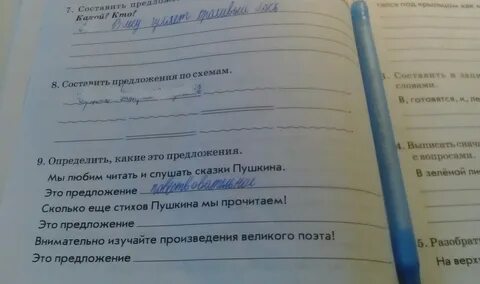 7. Составить предложе
Какой? Кто?
В лесу гуляет красивый лось
8. Составить предложения по схемам.
9. Определить, какие это предложения.
Мы любим читать и слушать сказки Пушкина.
Это предложение повествовательное
Сколько еще стихов Пушкина мы прочитаем!
Это предложение
Внимательно изучайте произведения великого поэта!
Это предложение
1. Составить и запи
словами.
В, готовятся, к, ле
4. Выписать снача
с вопросами.
В зелёной ли
5. Разобрат
На верх